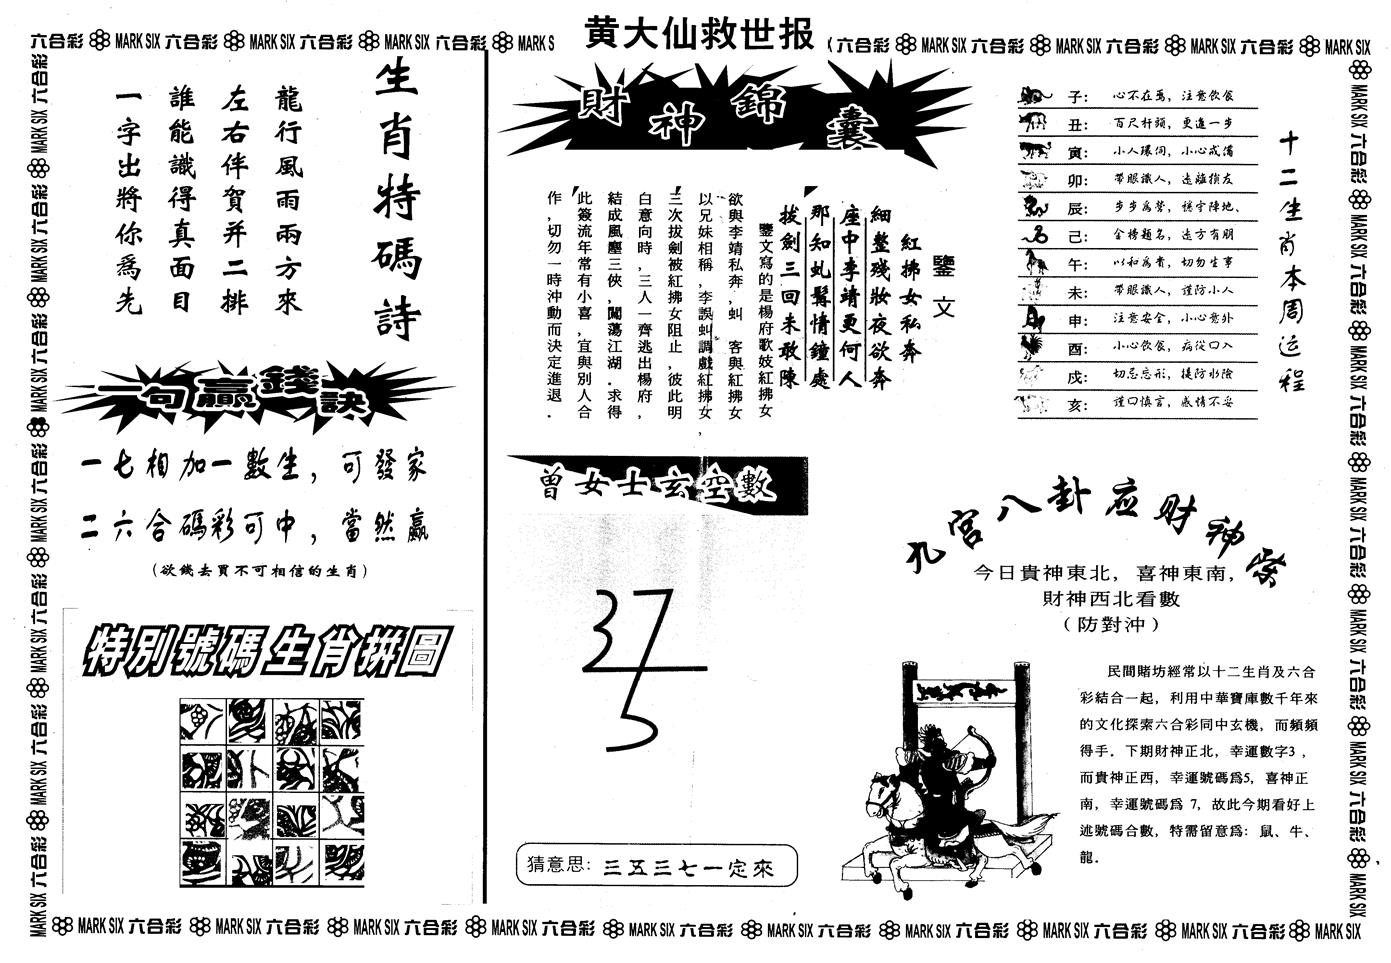 黄大仙救世报
六合彩 MARK SIX 六合彩 MARK SIX 六合彩 MARK SIX 六合彩 MARK S
六合彩 MARK SIX 六合彩 MARK SIX 六合彩 MARK SIX 六合彩 MARK SIX
生肖特碼詩
龍行風雨兩方來
左右伴賀并二排
誰能識得真面目
一字出將你爲先
一句贏錢訣
一七相加一數生，可發家
二六合碼彩可中，當然贏
(欲錢去買不可相信的生肖)
特別號碼生肖拚圖
財神錦囊
鑒文
紅拂女私奔
細整殘妝夜欲奔
座中李靖更何人
那知虬髯情鐘處
拔劍三回未敢陳
鑒文寫的是楊府歌妓紅拂女
欲與李靖私奔，虬　客與紅拂女
以兄妹相稱，李誤虬調戲紅拂女，
三次拔劍被紅拂女阻止，彼此明
白意向時，三人一齊逃出楊府，
結成風塵三俠，闖蕩江湖．求得
此簽流年常有小喜，宜與別人合
作，切勿一時沖動而決定進退．
曾女士玄空數
37
5
猜意思：三五三七一定來
十二生肖本周运程
子： 心不在焉，注意飲食
丑： 百尺杆頭，更進一步
寅： 小人環伺，小心戒備
卯： 帶眼識人，遠離損友
辰： 步步爲營，穩守陣地、
己： 金榜題名，遠方有朋
午： 以和爲貴，切勿生事
未： 帶眼識人，謹防小人
申： 注意安全，小心意外
酉： 小心飲食，病從口入
戍： 切忌忘形，提防水險
亥： 謹口慎言，感情不妥
九宮八卦应财神案
今日貴神東北，喜神東南，
財神西北看數
（防對沖）
民間賭坊經常以十二生肖及六合
彩結合一起，利用中華寶庫數千年來
的文化探索六合彩同中玄機，而頻頻
得手．下期財神正北，幸運數字3，
而貴神正西，幸運號碼爲5，喜神正
南，幸運號碼爲 7，故此今期看好上
述號碼合數，特需留意爲：鼠、牛、
龍．
MARK SIX 六合彩 MARK SIX 六合彩 MARK SIX 六合彩 MARK SIX 六合彩 MARK SIX 六合彩 MARK SIX 六合彩 MARK SIX 六合彩 MARK SIX 六合彩 MARK SIX 六合彩 MARK SIX